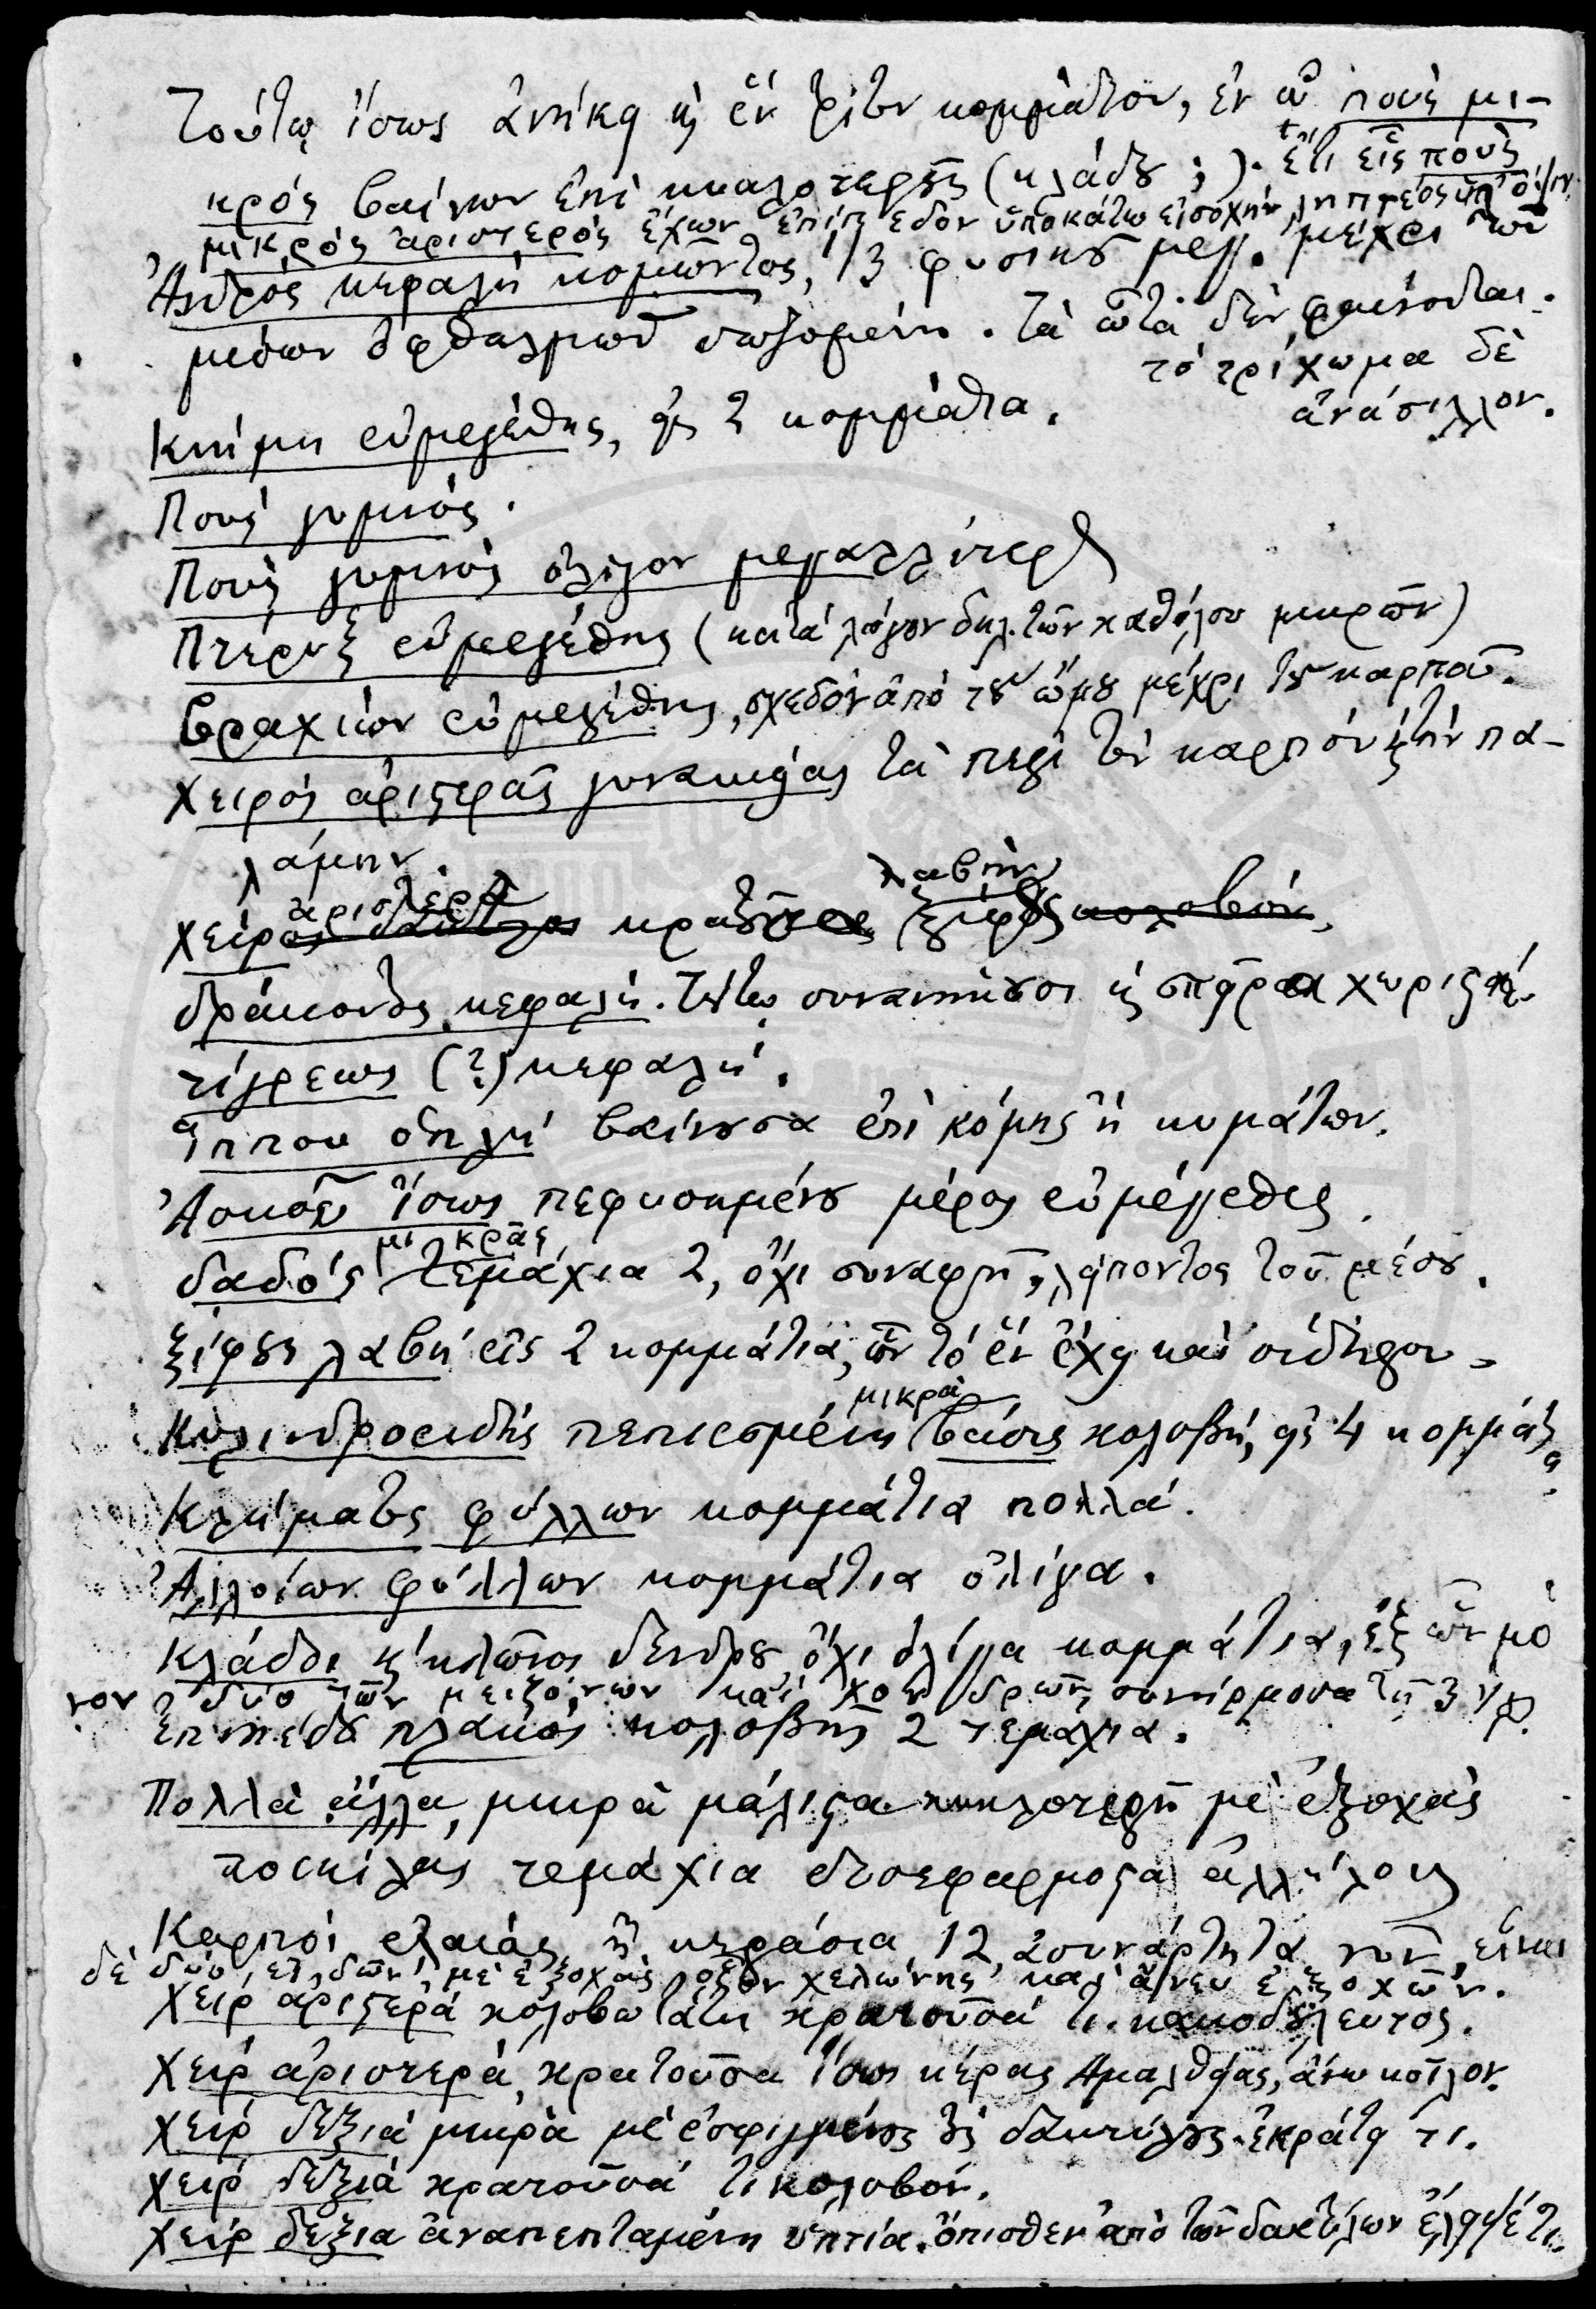 Τούτῳ ἴσως ἀνήκει κ ἓν τρίτον κομμάτιον, ἐν ᾧ ποὺς μι-
κρὸς βαίνων ἐπὶ κυκλοτεροῦς (κλάδου ;). ἔτι εἷς ποὺς
μικρὸς ἀριστερὸς ἔχων ἐπίπεδον ὑποκάτω
Ἀνδρὸς κεφαλὴ κομῶντος, 1/3 φυσικοῦ μεγ. μέχρι τῶν
μέσων ὀφθαλμῶν σωζομένη. Τὰ ὦτα δὲν φαίνονται.
τὸ τρίχωμα δὲ
ἀνάσιλλον.
Κνήμη εὐμεγέθης, εἰς 2 κομμάτια.
Ποὺς γυμνός.
Ποὺς γυμνὸς ὀλίγον μεγαλλίτερος
Πτέρυξ εὐμεγέθης (κατὰ λόγον δηλ. τῶν καθόλου μικρῶν)
Βραχίων εὐμεγέθης, σχεδὸν ἀπὸ τοῦ ὤμου μέχρι τοῦ καρποῦ.
Χειρὸς ἀριστερᾶς γυναικείας τὰ περὶ τὸν καρπὸν κ τὴν πα-
λάμην.
Χεὶρ ἀριστερὰ λαβὴν ξίφους κολοβόν,
Δράκοντος κεφαλή. Τούτῳ συνανήκουσι κ σπεῖραι χωρισταί.
Τίγρεως (?) κεφαλή.
Ἵππου ὁπλὴ βαίνουσα ἐπὶ κόμης ἢ κυμάτων.
Ἀσκοῦ ἴσως πεφυσημένου μέρος εὐμέγεθες.
Δαδὸς μικρᾶς τεμάχια 2, ὄχι συναφῆ, λείποντος τοῦ μέσου.
Ξίφους λαβὴ εἰς 2 κομμάτια, ὧν τὸ ἓν ἔχει καὶ σίδηρον.
Κυλινδροειδὴς πεπιεσμένη μικρὰ βάσις κολοβή, εἰς 4 κομμάτια.
Κλήματος φύλλων κομμάτια πολλά.
Ἀλλοίων φύλλων κομμάτια ὀλίγα.
Κλάδοι κ κλῶνοι δένδρου ὄχι ὀλίγα κομμάτια, ἐξ ὧν μό
νον δύο τῶν μειζόνων καὶ χονδρῶν συνήρμοσα τῇ 3
Ἐπιπέδου πλακὸς κολοβῆς 2 τεμάχια.
Πολλὰ ἄλλα, μικρὰ μάλιστα κυκλοτερῆ μὲ ἐξοχὰς
ποικίλας τεμάχια δυσεφάρμοστα ἀλλήλοις
Καρποὶ ἐλαίας ἢ κεράσια 12 ἀσυνάρτητα νῦν, εἶναι
δὲ δύο εἰδῶν, μὲ ἐξοχὰς χελώνης καὶ ἄνευ ἐξοχῶν.
Χεὶρ ἀριστερὰ κολοβωτάτη κρατοῦσά τι
Χεὶρ ἀριστερὰ κρατοῦσα ἴσως κέρας Ἀμαλθείας, ἄνω κοῖλον.
Χεὶρ δεξιὰ μικρὰ μὲ ἐσφιγμένους τοὺς δακτύλους. ἐκράτει τι.
Χεὶρ δεξιὰ κρατοῦσά τι κολοβόν.
Χεὶρ δεξιὰ ἀναπεπταμένη ὑπτία. ὄπισθεν ἀπὸ τῶν δακτύλων